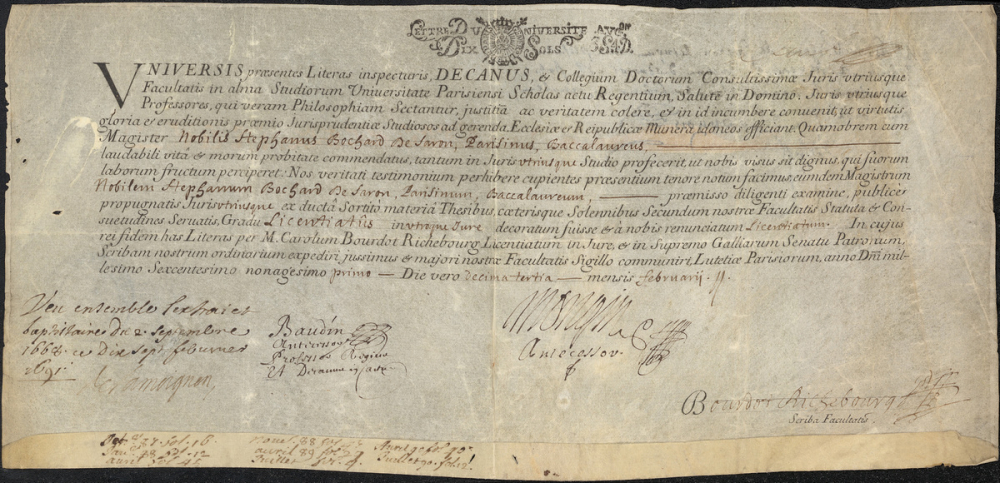 LETTRE DV VNIVERSITE
DIX SOLS
VNIVERSIS præsentes Literas inspecturis, DECANUS, & Collegium Doctorum Consultissimæ Juris vtriusque
Facultatis in alma Studiorum Universitate Parisiensi Scholas actu Regentium, Salutē in Domino. Juris vtriusque
Professores, qui veram Philosophiam Sectantur, justitiā ac veritatem colere, & in id incumbere convenit, ut virtutis,
gloriæ & eruditionis præmio Jurisprudentiæ Studiosos ad gerenda Ecclesiæ & Reipublicæ Munera idoneos efficiant. Quamobrem cum
Magister Nobilis Stephanus Bochard De Saron, Parisinus, Baccalaureus,
laudabili vitâ & morum probitate commendatus, tantum in Juris vtriusque Studio profecerit, ut nobis visus sit dignus, qui suorum
laborum fructum perciperet: Nos veritati testimonium perhibere cupientes præsentium tenore notum facimus eumdem Magistrum
Nobilem Stephanum Bochard De Saron, Parisinum, Baccalaureum, præmisso diligenti examine, publicè
propugnatis Juris vtriusque ex ductâ Sortitò materiâ Thesibus, cæterisque Solennibus Secundum nostræ Facultatis Statuta & Con-
suetudines Servatis, Gradu Licentiatûs in vtroque Jure decoratum fuisse & à nobis renunciatum Licentiatum. In cujus
rei fidem has Literas per M. Carolum Bourdot Richebourg Licentiatum in Jure, & in Supremo Galliarum Senatu Patronum,
Scribam nostrum ordinarium expediri jussimus & majori nostræ Facultatis Sigillo communiri, Lutetiæ Parisiorum, anno Dñi mil-
lesimo Sexcentesimo nonagesimo primo Die vero decima tertia mensis februarii.
Veu ensemble l'extrait
baptistaire du 2. septembre
1668. ce Dix sept febvrier
1691.
Baudin
Antecessor
Professor Regius
Et Decanus
Antecessor.
Bourdot Richebourg
Scriba Facultatis
Oct. 87 fol. 16
avril
avril 88
Juillet
Avril 90 fol.
Juillet 90. fol.